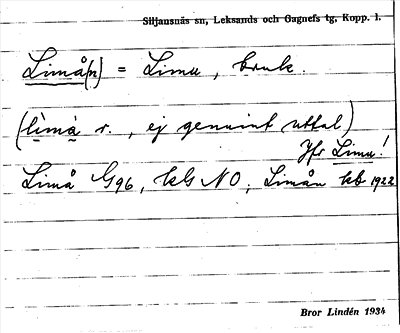 Siljansnäs sn, Leksands och Gagnefs tg, Kopp. l.
Limå(n) = Limu, bruk.
(lìmà r., ej genuint uttal)
Jfr Limu!
Limå G96, kls NO; Limån kb 1922
Bror Lindén 1934